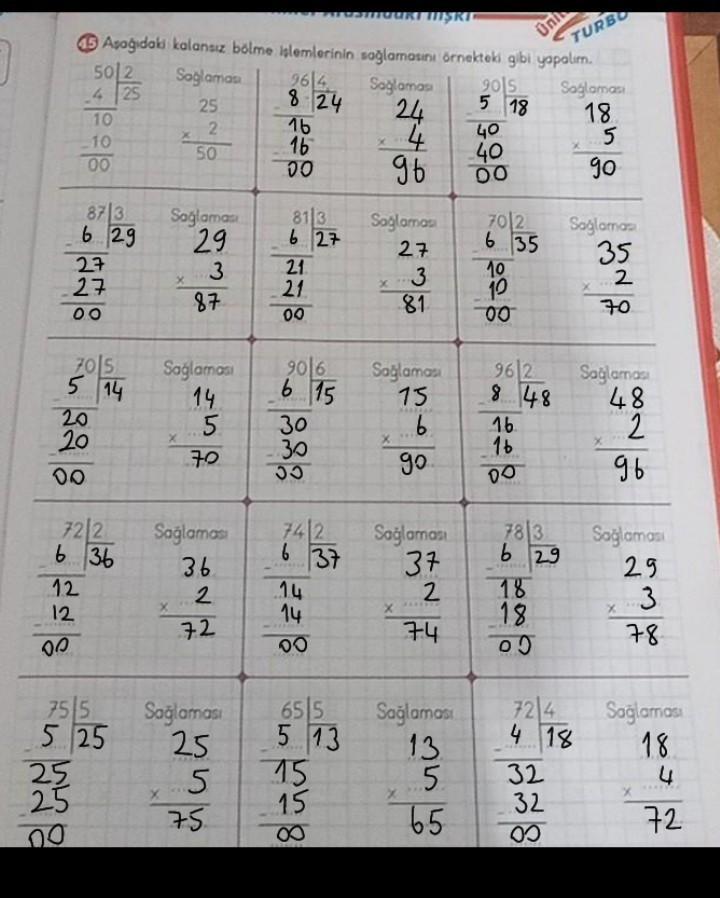 Ünite
TURBO
45 Aşağıdaki kalansız bölme işlemlerinin sağlamasını örnekteki gibi yapalım.
50 2 Sağlaması 96 4 Sağlaması 90 5 Sağlaması
- 4 25 25 - 8 24 24 - 5 18 18
10 x 2 16 x 4 40 x 5
- 10 50 - 16 96 - 40 90
00 00 00
87 3 Sağlaması 81 3 Sağlaması 70 2 Sağlaması
- 6 29 29 - 6 27 27 - 6 35 35
27 x 3 21 x 3 10 x 2
- 27 87 - 21 81 - 10 70
00 00 00
70 5 Sağlaması 90 6 Sağlaması 96 2 Sağlaması
- 5 14 14 - 6 15 15 - 8 48 48
20 x 5 30 x 6 16 x 2
- 20 70 - 30 90 - 16 96
00 00 00
72 2 Sağlaması 74 2 Sağlaması 78 3 Sağlaması
- 6 36 36 - 6 37 37 - 6 29 29
12 x 2 14 x 2 18 x 3
- 12 72 - 14 74 - 18 78
00 00 00
75 5 Sağlaması 65 5 Sağlaması 72 4 Sağlaması
- 5 25 25 - 5 13 13 - 4 18 18
25 x 5 15 x 5 32 x 4
- 25 75 - 15 65 - 32 72
00 00 00